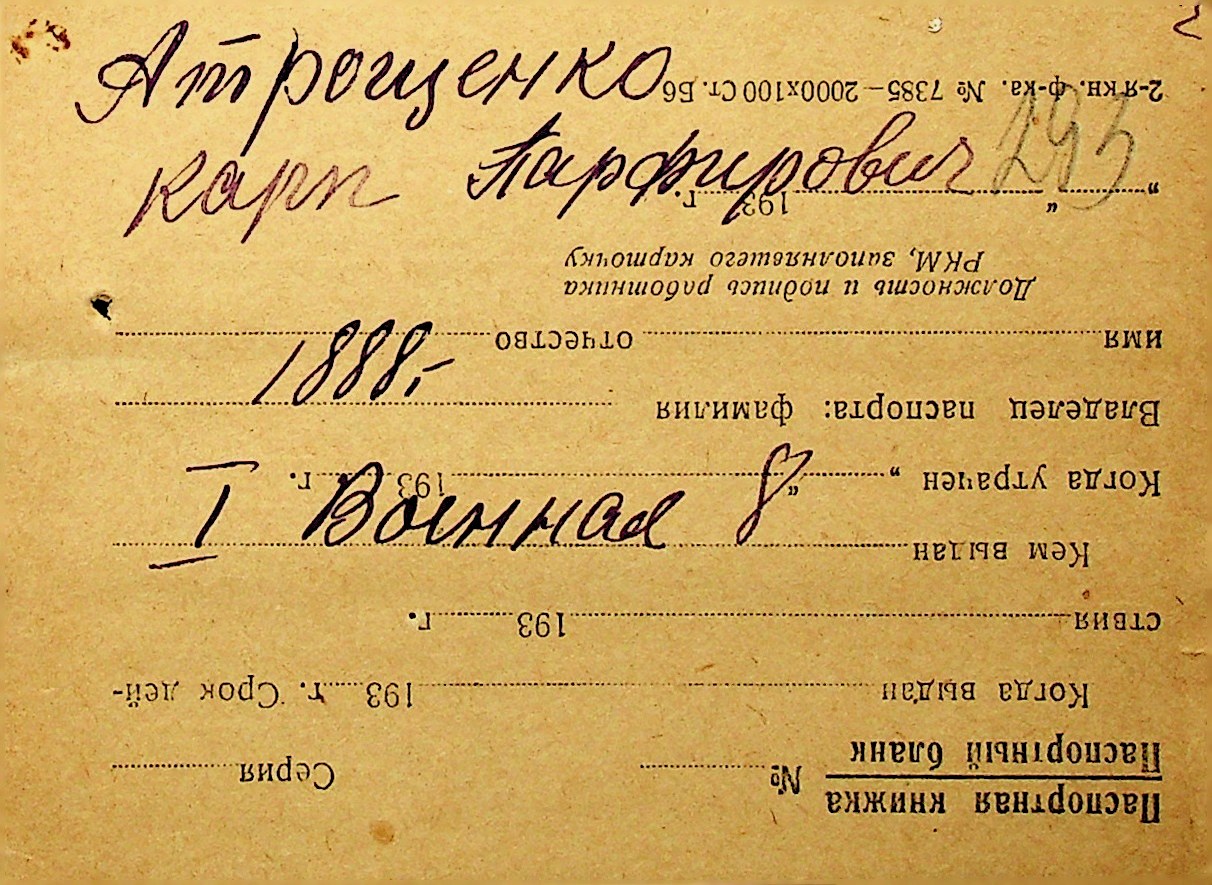 Атрощенко
Карп Парфирович 293
1888,-
I Военная 8
Паспортная книжка
Паспортный бланк
№ Серия
Когда выдан 193 г. Срок дей-
ствия 193 г.
Кем выдан
Когда утрачен „ “ 193 г.
Владелец паспорта: фамилия
имя отчество
Должность и подпись работника
РКМ, заполнявшего карточку
„ “ 193 г.
2-я кн. ф-ка. № 7385—2000х100 Ст. Б6